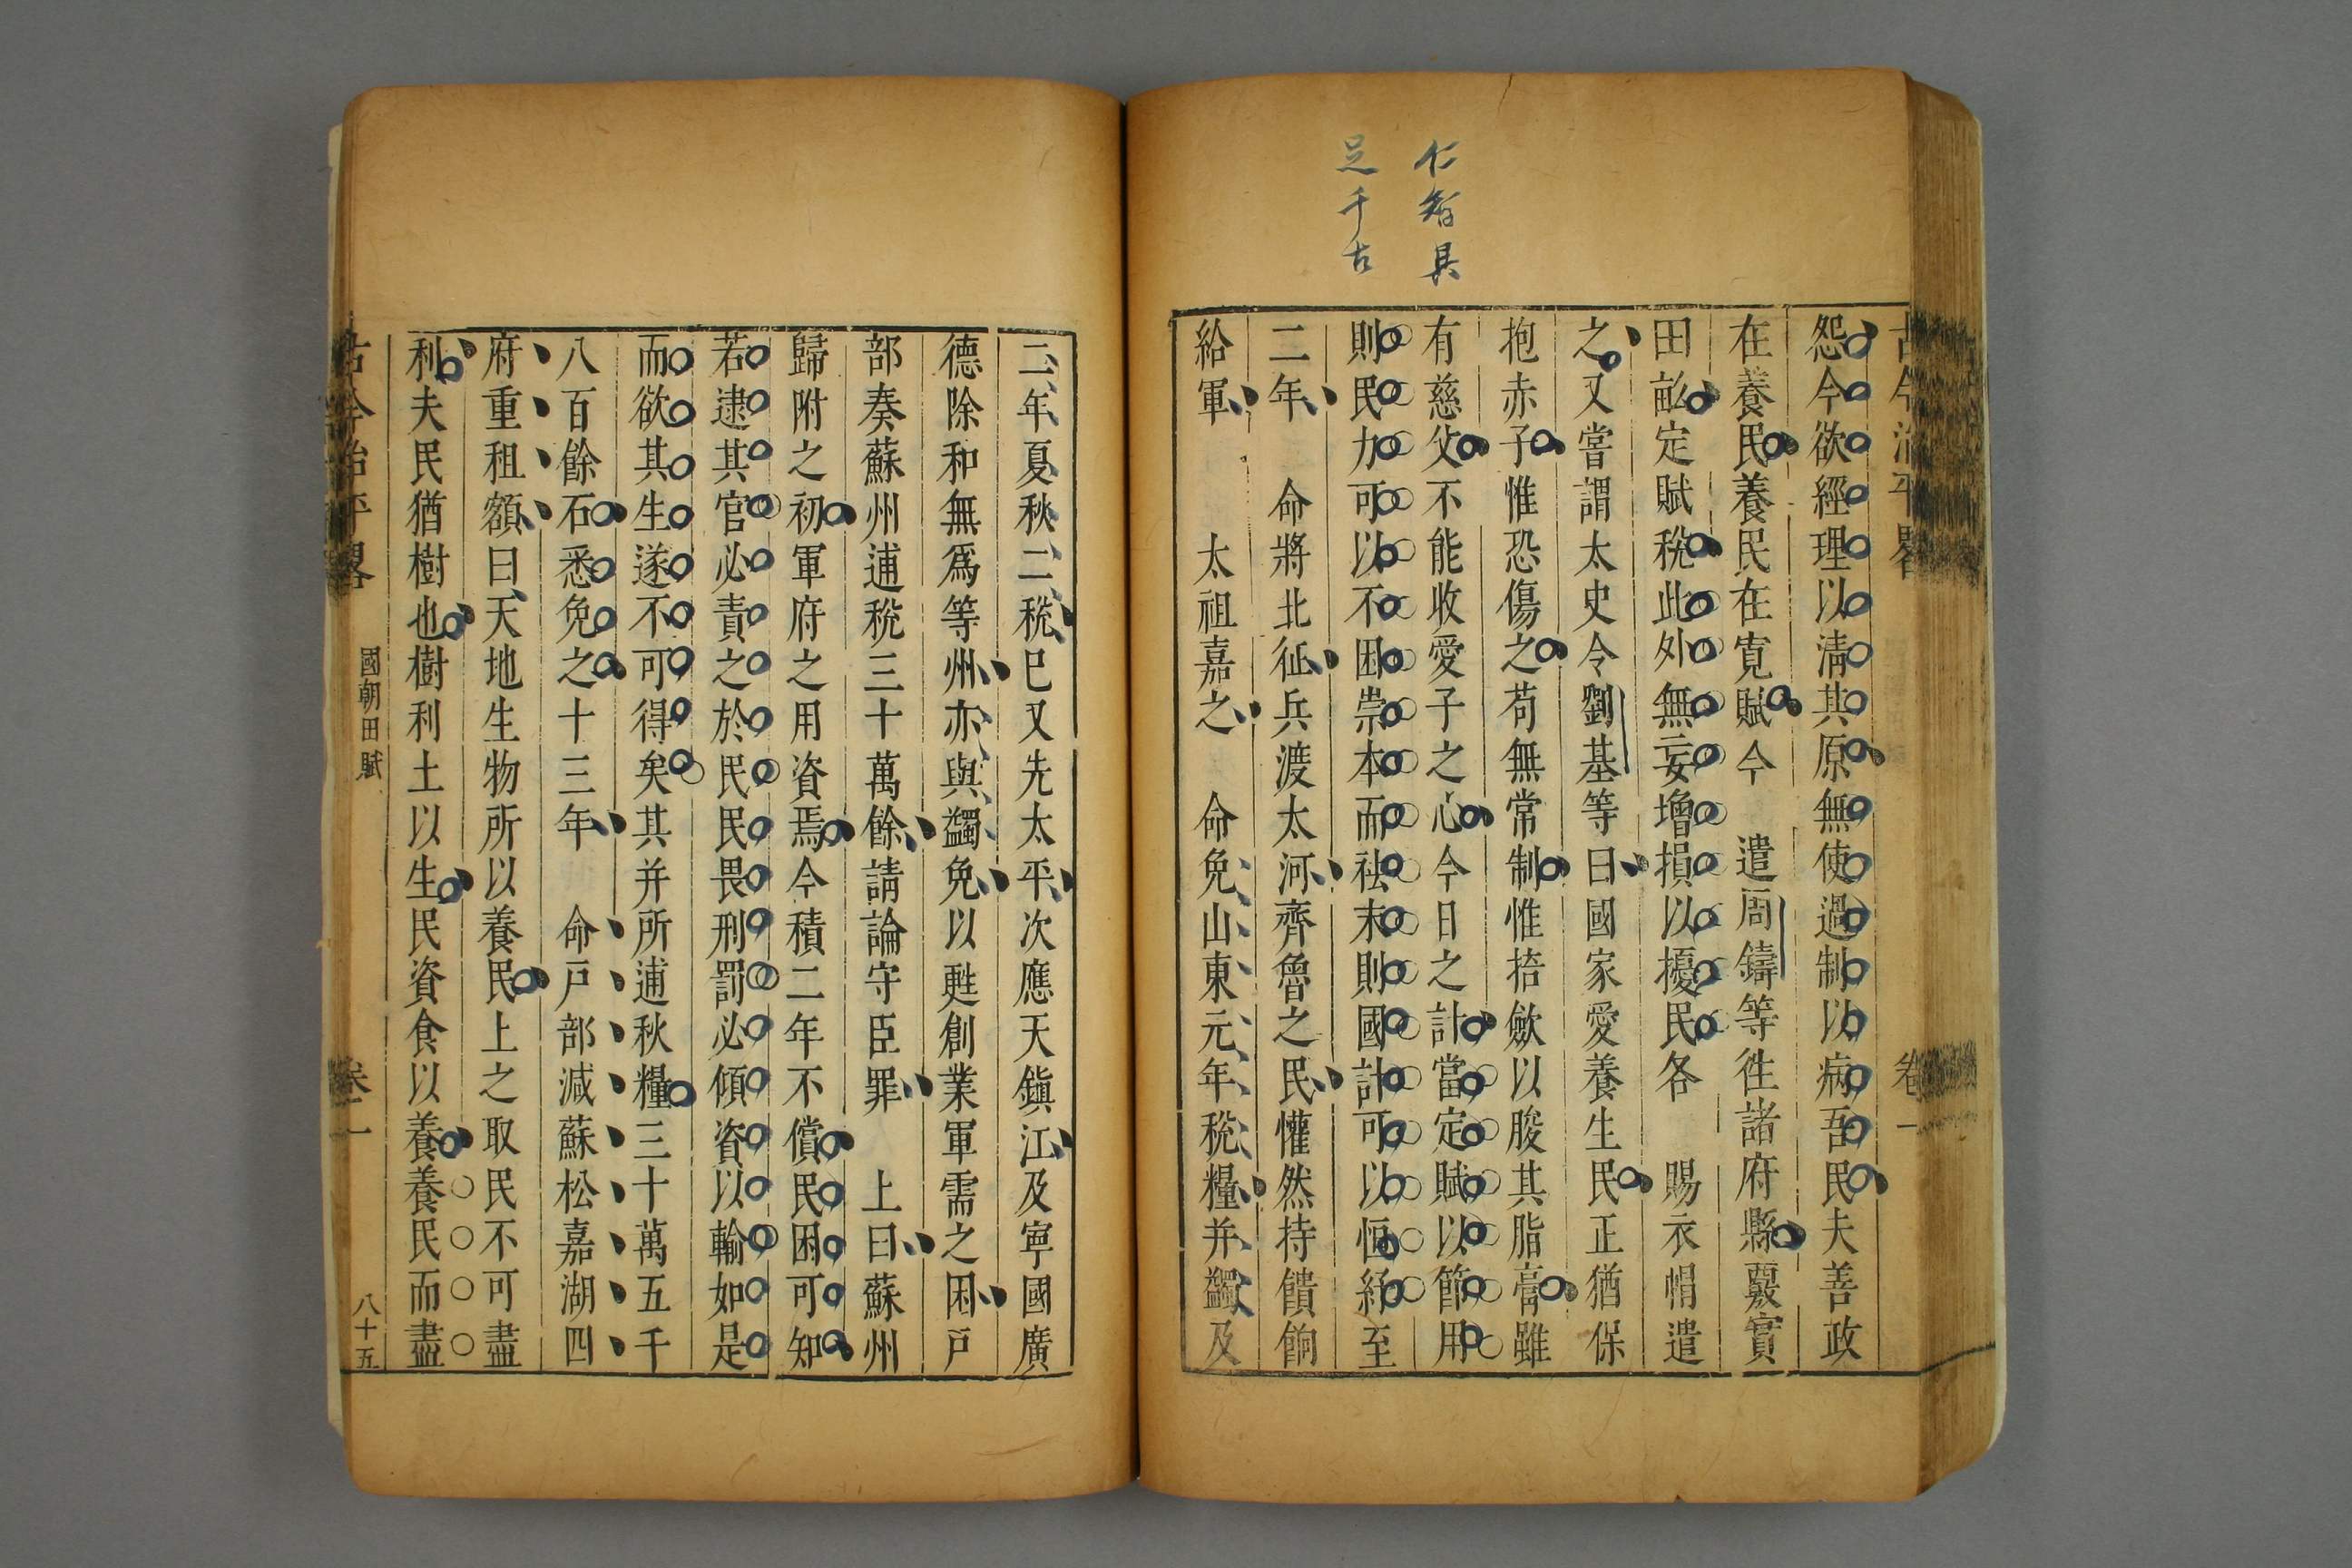 仁智具
足千古
古今治平畧
卷一
怨今欲經理以淸其原無使過制以病吾民夫善政
在養民養民在寬賦今 遣周鑄等徃諸府縣覈實
田畝定賦稅此外無妄增損以擾民各 賜衣帽遣
之又嘗謂太史令劉基等曰國家愛養生民正猶保
抱赤子惟恐傷之苟無常制惟掊斂以朘其脂膏雖
有慈父不能收愛子之心今日之計當定賦以節用
則民力可以不困崇本而祛末則國計可以恒紓至
二年 命將北征兵渡太河齊魯之民懽然持饋餉
給軍 太祖嘉之 命免山東元年稅糧并蠲及
二年夏秋二稅巳又先太平次應天鎭江及寧國廣
德除和無爲等州亦與蠲免以甦創業軍需之困戸
部奏蘇州逋稅三十萬餘請論守臣罪 上曰蘇州
歸附之初軍府之用資焉今積二年不償民困可知
若逮其官必責之於民民畏刑罰必傾資以輸如是
而欲其生遂不可得矣其并所逋秋糧三十萬五千
八百餘石悉免之十三年 命戸部減蘇松嘉湖四
府重租額曰天地生物所以養民上之取民不可盡
利夫民猶樹也樹利土以生民資食以養養民而盡
古今治平畧
國朝田賦
卷一
八十五